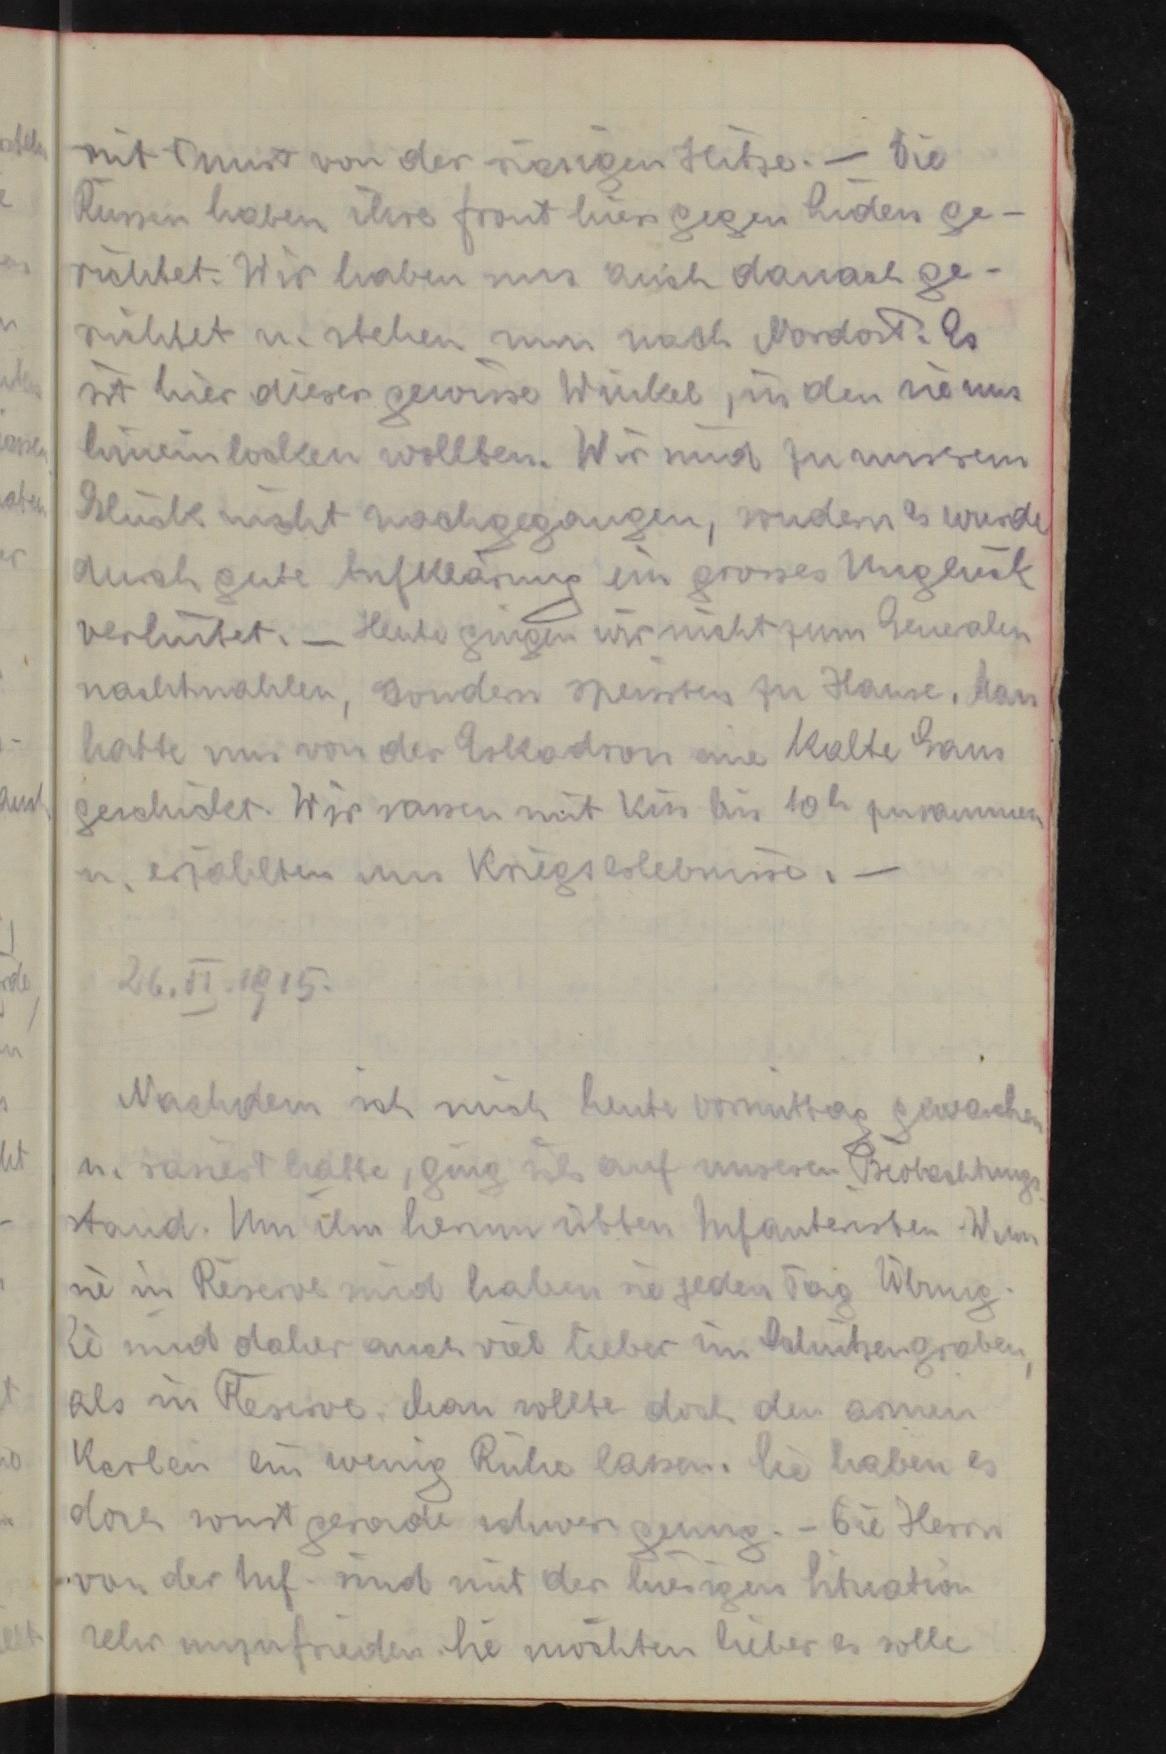 mit Durst von der riesigen Hitze. — Die
Russen haben ihre Front hier gegen Süden ge-
richtet. Wir haben uns auch danach ge-
richtet u. stehen nun nach Nordost. Es
ist hier dieser gewisse Winkel, in den sie uns
hineinlocken wollten. Wir sind zu unserem
Glück nicht nachgegangen, sondern es wurde
durch gute Aufklärung ein grosses Unglück
verhütet. — Heute gingen wir nicht zum Generalen
nachtmahlen, sondern speisten zu Hause. Man
hatte uns von der Eskadron eine kalte Gans
geschickt. Wir sassen mit Kiss bis 10h zusammen
u. erzählten uns Kriegserlebnisse. —
26. VI. 1915.
Nachdem ich mich heute vormittag gewaschen
u. rasiert hatte, ging ich auf unseren Beobachtungs-
stand. Um ihn herum übten Infanteristen. Wenn
sie in Reserve sind haben sie jeden Tag Übung.
Sie sind daher auch viel lieber im Schützengraben,
als in Reserve. Man sollte doch den armen
Kerlen ein wenig Ruhe lassen. Sie haben es
doch sonst gerade schwer genug. – Die Herrn
von der Inf. sind mit der hiesigen Situation
sehr unzufrieden. Sie möchten lieber es solle